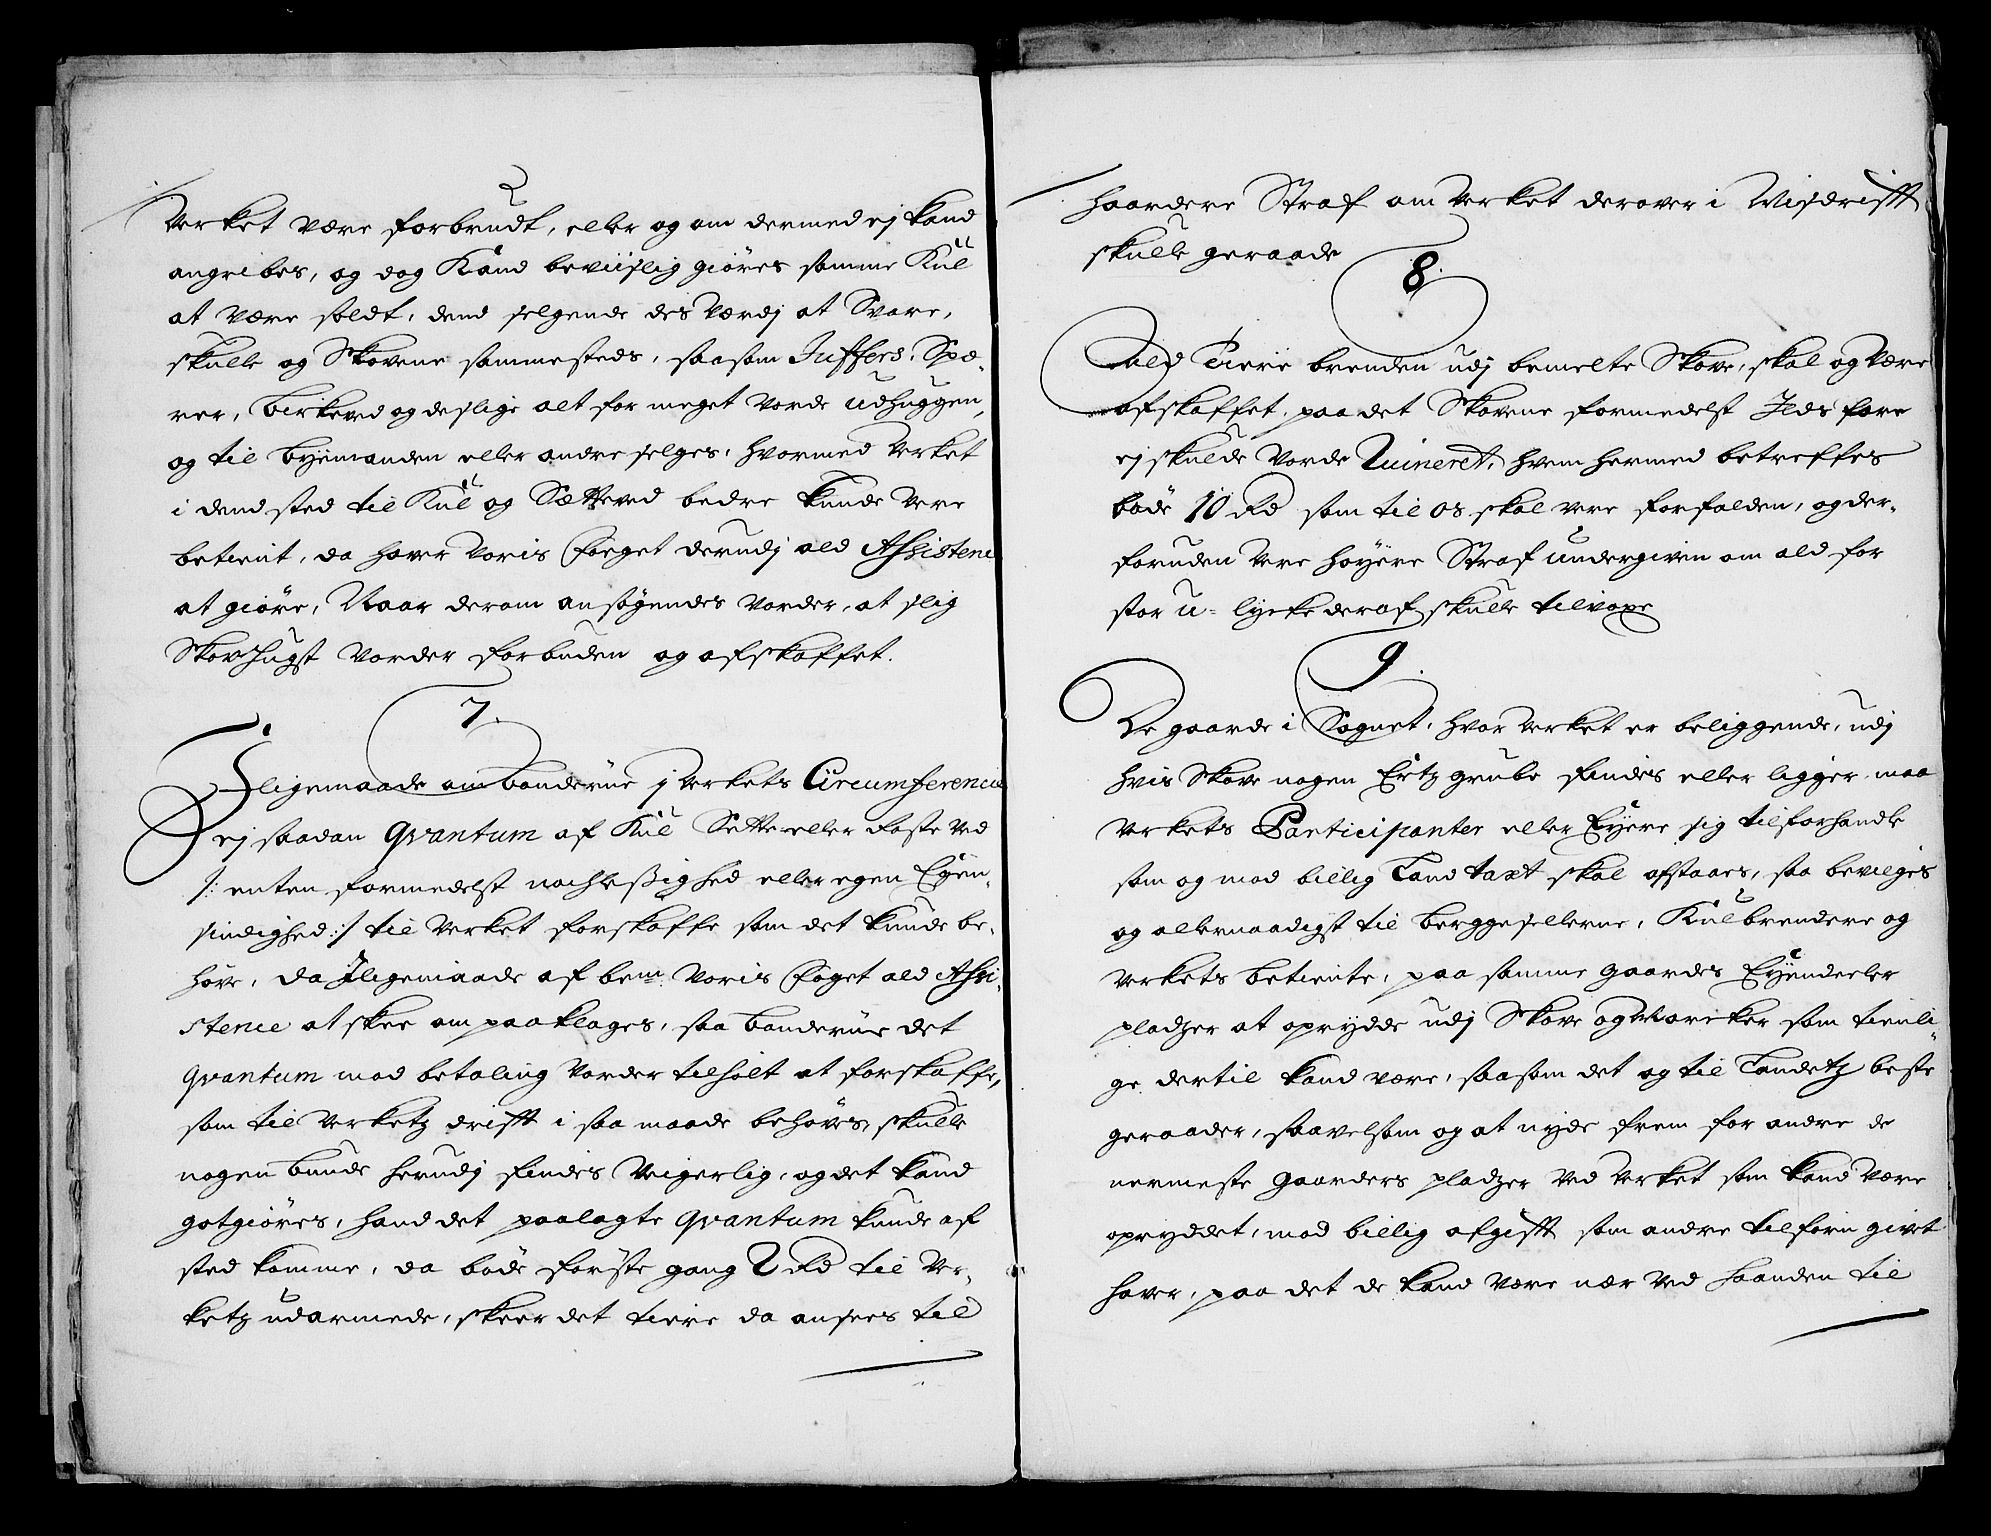 Verket være forbrudt, eller og om dermed ej kand
angribes, og dog Kand beviislig giöres samme Kul
at være soldt, dend selgende des værdj at Svare,
skulle og Skovene sammesteds, saasom Juffers, Spæ-
rer, birkeved og deslige alt for meget vorde udhuggen,
og til byemanden eller andre selges, hvormed Verket
i dend sted til Kul og Sætteved bedre kunde vere
betient, da haver Voris Foeget derudj ald Assistence
at giöre, Naar derom ansögendes vorder, at slig
Skovhugst vorder forbuden og afskaffet.
7.
Jligemaade om bönderne j Verkets Circumference
ej saadan qvantum af Kul Sette eller Röste ved
/: enten formedelst nachlessighed eller egen Egen-
sindighed :/ til Verket forskaffe som det kunde be-
höve, da Jligemaade af bemte Voris Foget ald Assi-
stence at skee om paaklages, saa bönderne det
qvantum mod betaling vorder tilholt at forskaffe,
som til Verketz drifft i saa maade behöves, skulle
nogen bunde herudj findes Veigerlig, og det kand
gotgiöres, hand det paalagte qvantum kunde af
sted komme, da böde förste gang 2 Rd til Ver-
ketz udarmede, skeer det tiere da ansees til
haardere Straf om Verket derover i Misdrifft
skulle geraade
8.
Ald Tiere brenden udj bemelte Skove, skal og være
afskaffet, paa det Skovene formedelst Jlds fare
ej skulde vorde Ruineret, hvem hermed betreffes
böde 10 Rd som til os skal vere forfalden, og der-
foruden vere höyere Straf undergiven om ald for
stor u-lycke deraf skulle tilvoxe
9.
De gaarde i Sognet, hvor Verket er beliggende, udj
hvis Skove nogen Ertz grube findes eller ligger, maa
Verkets Participanter eller Eyere sig tilforhandle
som og mod billig Land taxt skal afstaaes, saa bevilges
og allernaadigst til berggesellerne, Kulbrendere og
Verkets betiente, paa samme gaardes Eyendeeler
pladzer at oprydde udj Skove og Marcker som tienli-
ge dertil kand være, saasom det og til Landetz beste
geraader, saavelsom og at nyde frem for andre de
nermeste gaarders pladzer ved Verket som kand være
opryddet, mod billig afgifft som andre tilforn givet
haver, paa det de kand være nær ved haanden til